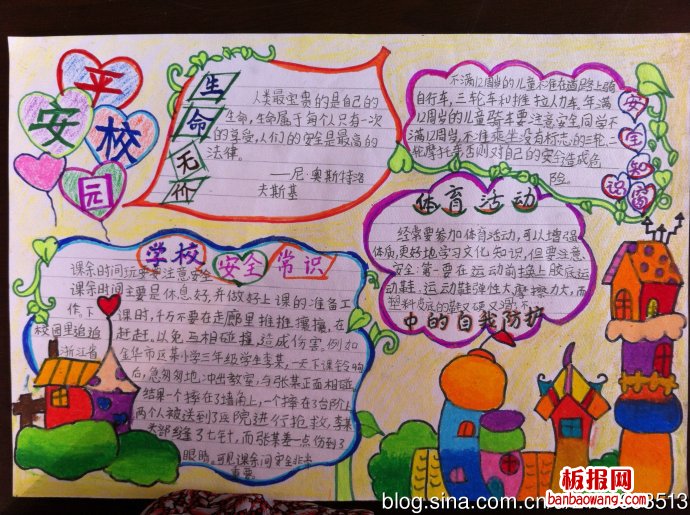 平安校园
生命无价
人类最宝贵的是自己的
生命,生命属于每个人只有一次
的享受,人们的安全是最高的
法律。
——尼·奥斯特洛
夫斯基
不满12周岁的儿童不准在道路上骑
自行车,三轮车和推拉人力车,年满
12周岁的儿童骑车要注意安全同学不
满12周岁,不准乘坐没有标志的三轮,三
轮摩托,否则对自己的安全造成危
险。
安全知识窗
体育活动
经常要参加体育活动,可以增强
体质,更好地学习文化知识,但要注意
安全第一要在运动前换上胶底运
动鞋,运动鞋弹性大摩擦力大,而
塑料皮底的鞋又硬又滑
中的自我防护
学校安全常识
课余时间玩耍要注意安全
课余时间主要是休息好,并做好上课的准备工
作,下课时,千万不要在走廊里推推攘攘,在
校园里追追赶赶,以免互相碰撞,造成伤害,例如
浙江省金华市区某小学三年级学生李某,一天下课铃响
后,急匆匆地冲出教室,与张某正面相碰
结果一个摔在了墙角上,一个摔在了台阶上
两个人被送到了医院进行抢救,李某
头部缝了七针,而张某差一点伤到了
眼睛。可见课余间安全非常
重要。
板报网
banbaowang.com
blog.sina.com.cn
3513